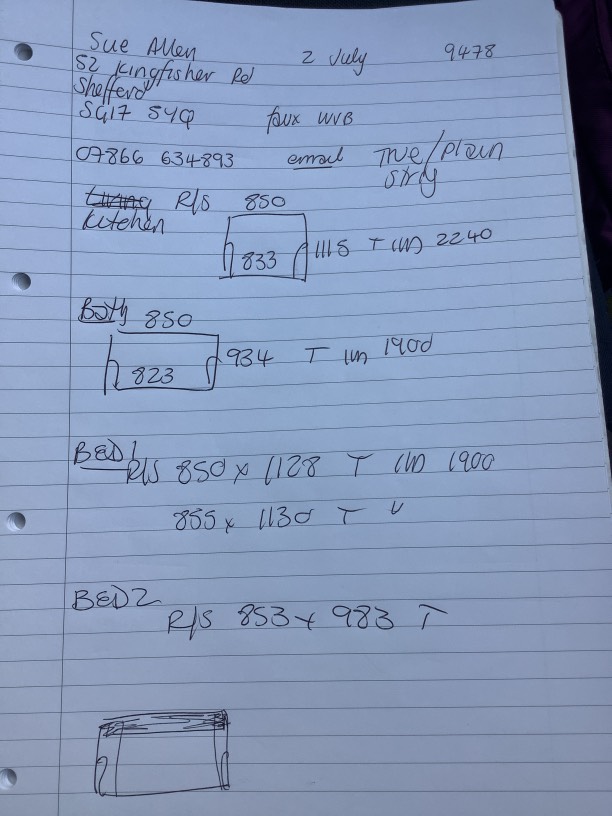 Sue Allen 2 July 9478
52 Kingfisher Rd
Shefferd
SG17 5YQ faux WVB
07866 634893 email True/plain
strg
Living R/S 850
Kitchen
833 1115 T UN 2240
Both 850
823 934 T UN 1900
BED1
R/S 850 x 1128 T UN 1900
855 x 1130 T U
BED2
R/S 853 x 983 T